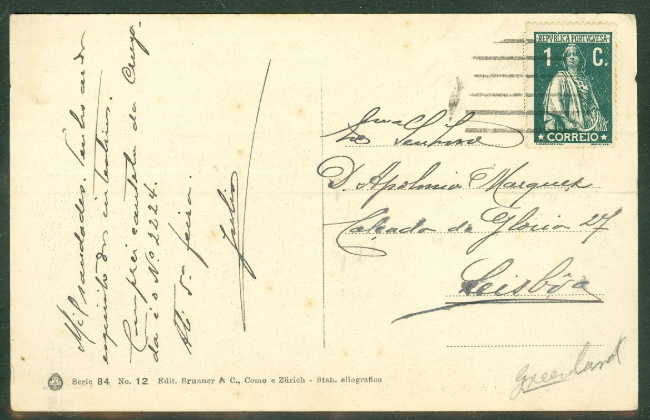 Mil saudades, tenho an
esquecido
Comprei cautela da Cruz
da é o Nº 2224.
Até 5ª feira.
Julio
REPUBLICA PORTUGUESA
1 C.
CORREIO
Exma
D Apolonia Marques
Calçada da Gloria 27
Lisbôa
Greenland
Serie 84 No. 12 Edit. Brunner & C., Como e Zürich - Stab. eliografico